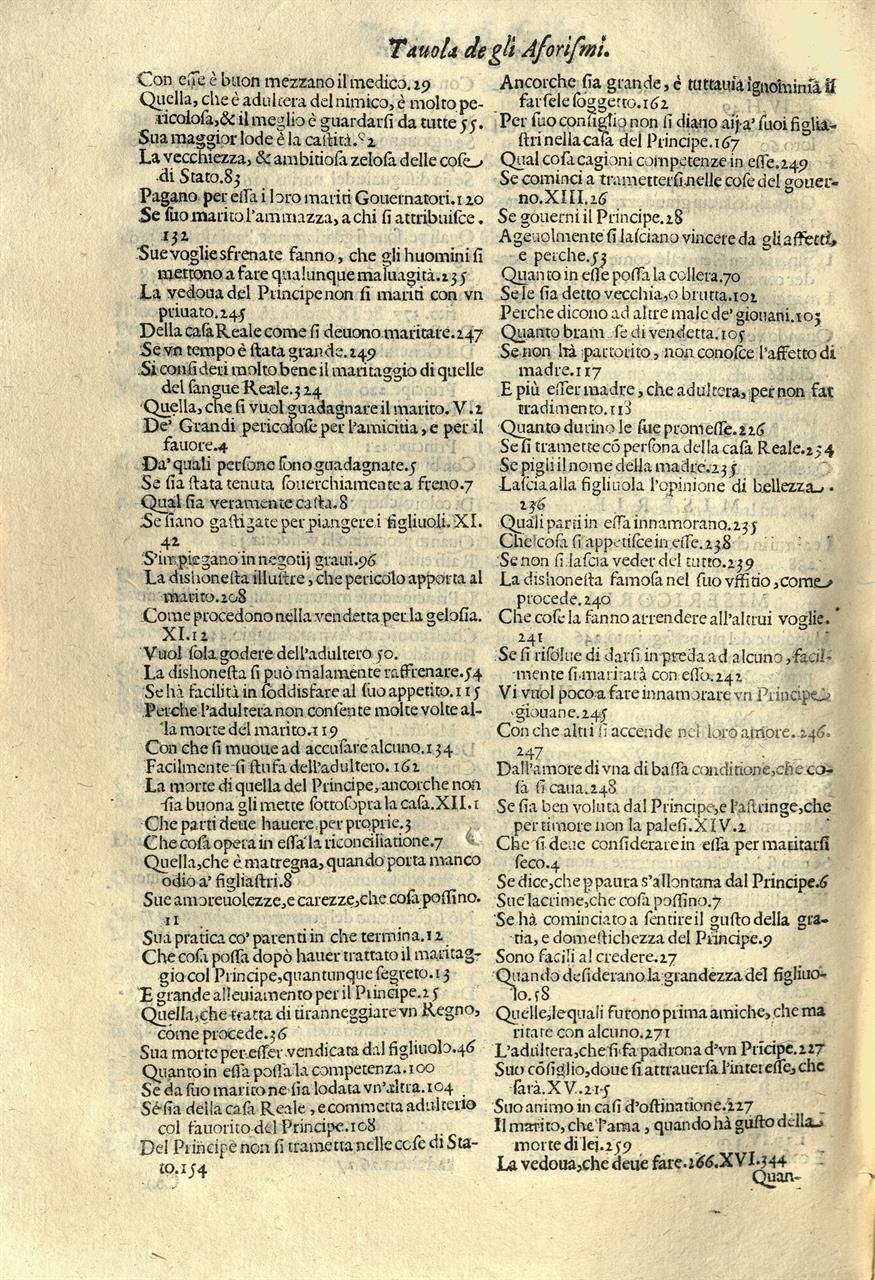 Tauola de gli Aforiſmi.
Con eſſe è buon mezzano il medico.29
Quella, che è adultera del nimico, è molto pe-
ricoloſa, & il meglio è guardarſi da tutte 55.
Sua maggior lode è la caſtità. 2
La vecchiezza, & ambitioſa zeloſa delle coſe
di Stato.83
Pagano per eſſa i loro mariti Gouernatori.120
Se ſuo marito l'ammazza, a chi ſi attribuiſce.
132
Sue voglie sfrenate fanno, che gli huomini ſi
mettono a fare qualunque maluagità.235
La vedoua del Principe non ſi mariti con vn
priuato.245
Della caſa Reale come ſi deuono maritare.247
Se vn tempo è ſtata grande.249
Si conſideri molto bene il maritaggio di quelle
del ſangue Reale.324
Quella, che ſi vuol guadagnare il marito. V.2
De' Grandi pericoloſe per l'amicitia, e per il
fauore.4
Da' quali perſone ſono guadagnate.5
Se ſia ſtata tenuta ſouerchiamente a freno.7
Qual ſia veramente caſta.8
Se ſiano gaſtigate per piangere i figliuoli. XI.
42
S'impiegano in negotij graui.96
La dishoneſta illuſtre, che pericolo apporta al
marito.208
Come procedono nella vendetta per la geloſia.
XI.12
Vuol ſola godere dell'adultero 50.
La dishoneſta ſi può malamente raffrenare.54
Se hà facilità in ſoddisfare al ſuo appetito.115
Perche l'adultera non conſente molte volte al-
la morte del marito.119
Con che ſi muoue ad accuſare alcuno.134
Facilmente ſi ſtufa dell'adultero. 162
La morte di quella del Principe, ancorche non
ſia buona gli mette ſottoſopra la caſa.XII.1
Che parti deue hauere per proprie.3
Che coſa opera in eſſa la riconciliatione.7
Quella, che è matregna, quando porta manco
odio a' figliaſtri.8
Sue amoreuolezze, e carezze, che coſa poſſino.
11
Sua pratica co' parenti in che termina.12
Che coſa poſſa dopò hauer trattato il maritag-
gio col Principe, quantunque ſegreto.13
E grande alleuiamento per il Principe.25
Quella, che tratta di tiranneggiare vn Regno,
come procede.36
Sua morte per eſſer vendicata dal figliuolo.46
Quanto in eſſa poſſa la competenza.100
Se da ſuo marito ne ſia lodata vn'altra.104
Se ſia della caſa Reale, e commetta adulterio
col fauorito del Principe.108
Del Principe non ſi trametta nelle coſe di Sta-
to.154
Ancorche ſia grande, è tuttauia ignominia il
farſele ſoggetto.162
Per ſuo conſiglio non ſi diano aij a' ſuoi figlia-
ſtri nella caſa del Principe.167
Qual coſa cagioni competenze in eſſe.249
Se cominci a trametterſi nelle coſe del gouer-
no.XIII.26
Se gouerni il Principe.28
Ageuolmente ſi laſciano vincere da gli affetti,
e perche.53
Quanto in eſſe poſſa la collera.70
Se le ſia detto vecchia, o brutta.102
Perche dicono ad altre male de' giouani.103
Quanto bram ſe di vendetta.105
Se non hà partorito, non conoſce l'affetto di
madre.117
E più eſſer madre, che adultera, per non far
tradimento.118
Quanto durino le ſue promeſſe.226
Se ſi tramette cõ perſona della caſa Reale.234
Se pigli il nome della madre.235
Laſcia alla figliuola l'opinione di bellezza.
236
Quali parti in eſſa innamorano.235
Che coſa ſi appetiſce in eſſe.238
Se non ſi laſcia veder del tutto.239
La dishoneſta famoſa nel ſuo vffitio, come
procede.240
Che coſe la fanno arrendere all'altrui voglie.
241
Se ſi riſolue di darſi in preda ad alcuno, facil-
mente ſi maritarà con eſſo.242
Vi vuol poco a fare innamorare vn Principe
giouane.245
Con che altri ſi accende nel loro amore. 246.
247
Dall'amore di vna di baſſa conditione, che co-
ſa ſi caua.248
Se ſia ben voluta dal Principe, e l'aſtringe, che
per timore non la paleſi.XIV.2
Che ſi deue conſiderare in eſſa per maritarſi
ſeco.4
Se dice, che p paura s'allontana dal Principe.6
Sue lacrime, che coſa poſſino.7
Se hà cominciato a ſentire il guſto della gra-
tia, e domeſtichezza del Principe.9
Sono facili al credere.27
Quando deſiderano la grandezza del figliuo-
lo.58
Quelle, le quali furono prima amiche, che ma
ritate con alcuno.271
L'adultera, che ſi fa padrona d'vn Prĩcipe.227
Suo cõſiglio, doue ſi attrauerſa l'intereſſe, che
ſarà.XV.215
Suo animo in caſi d'oſtinatione.227
Il marito, che l'ama, quando hà guſto della
morte di lei.259
La vedoua, che deue fare.266.XVI.344
Quan-